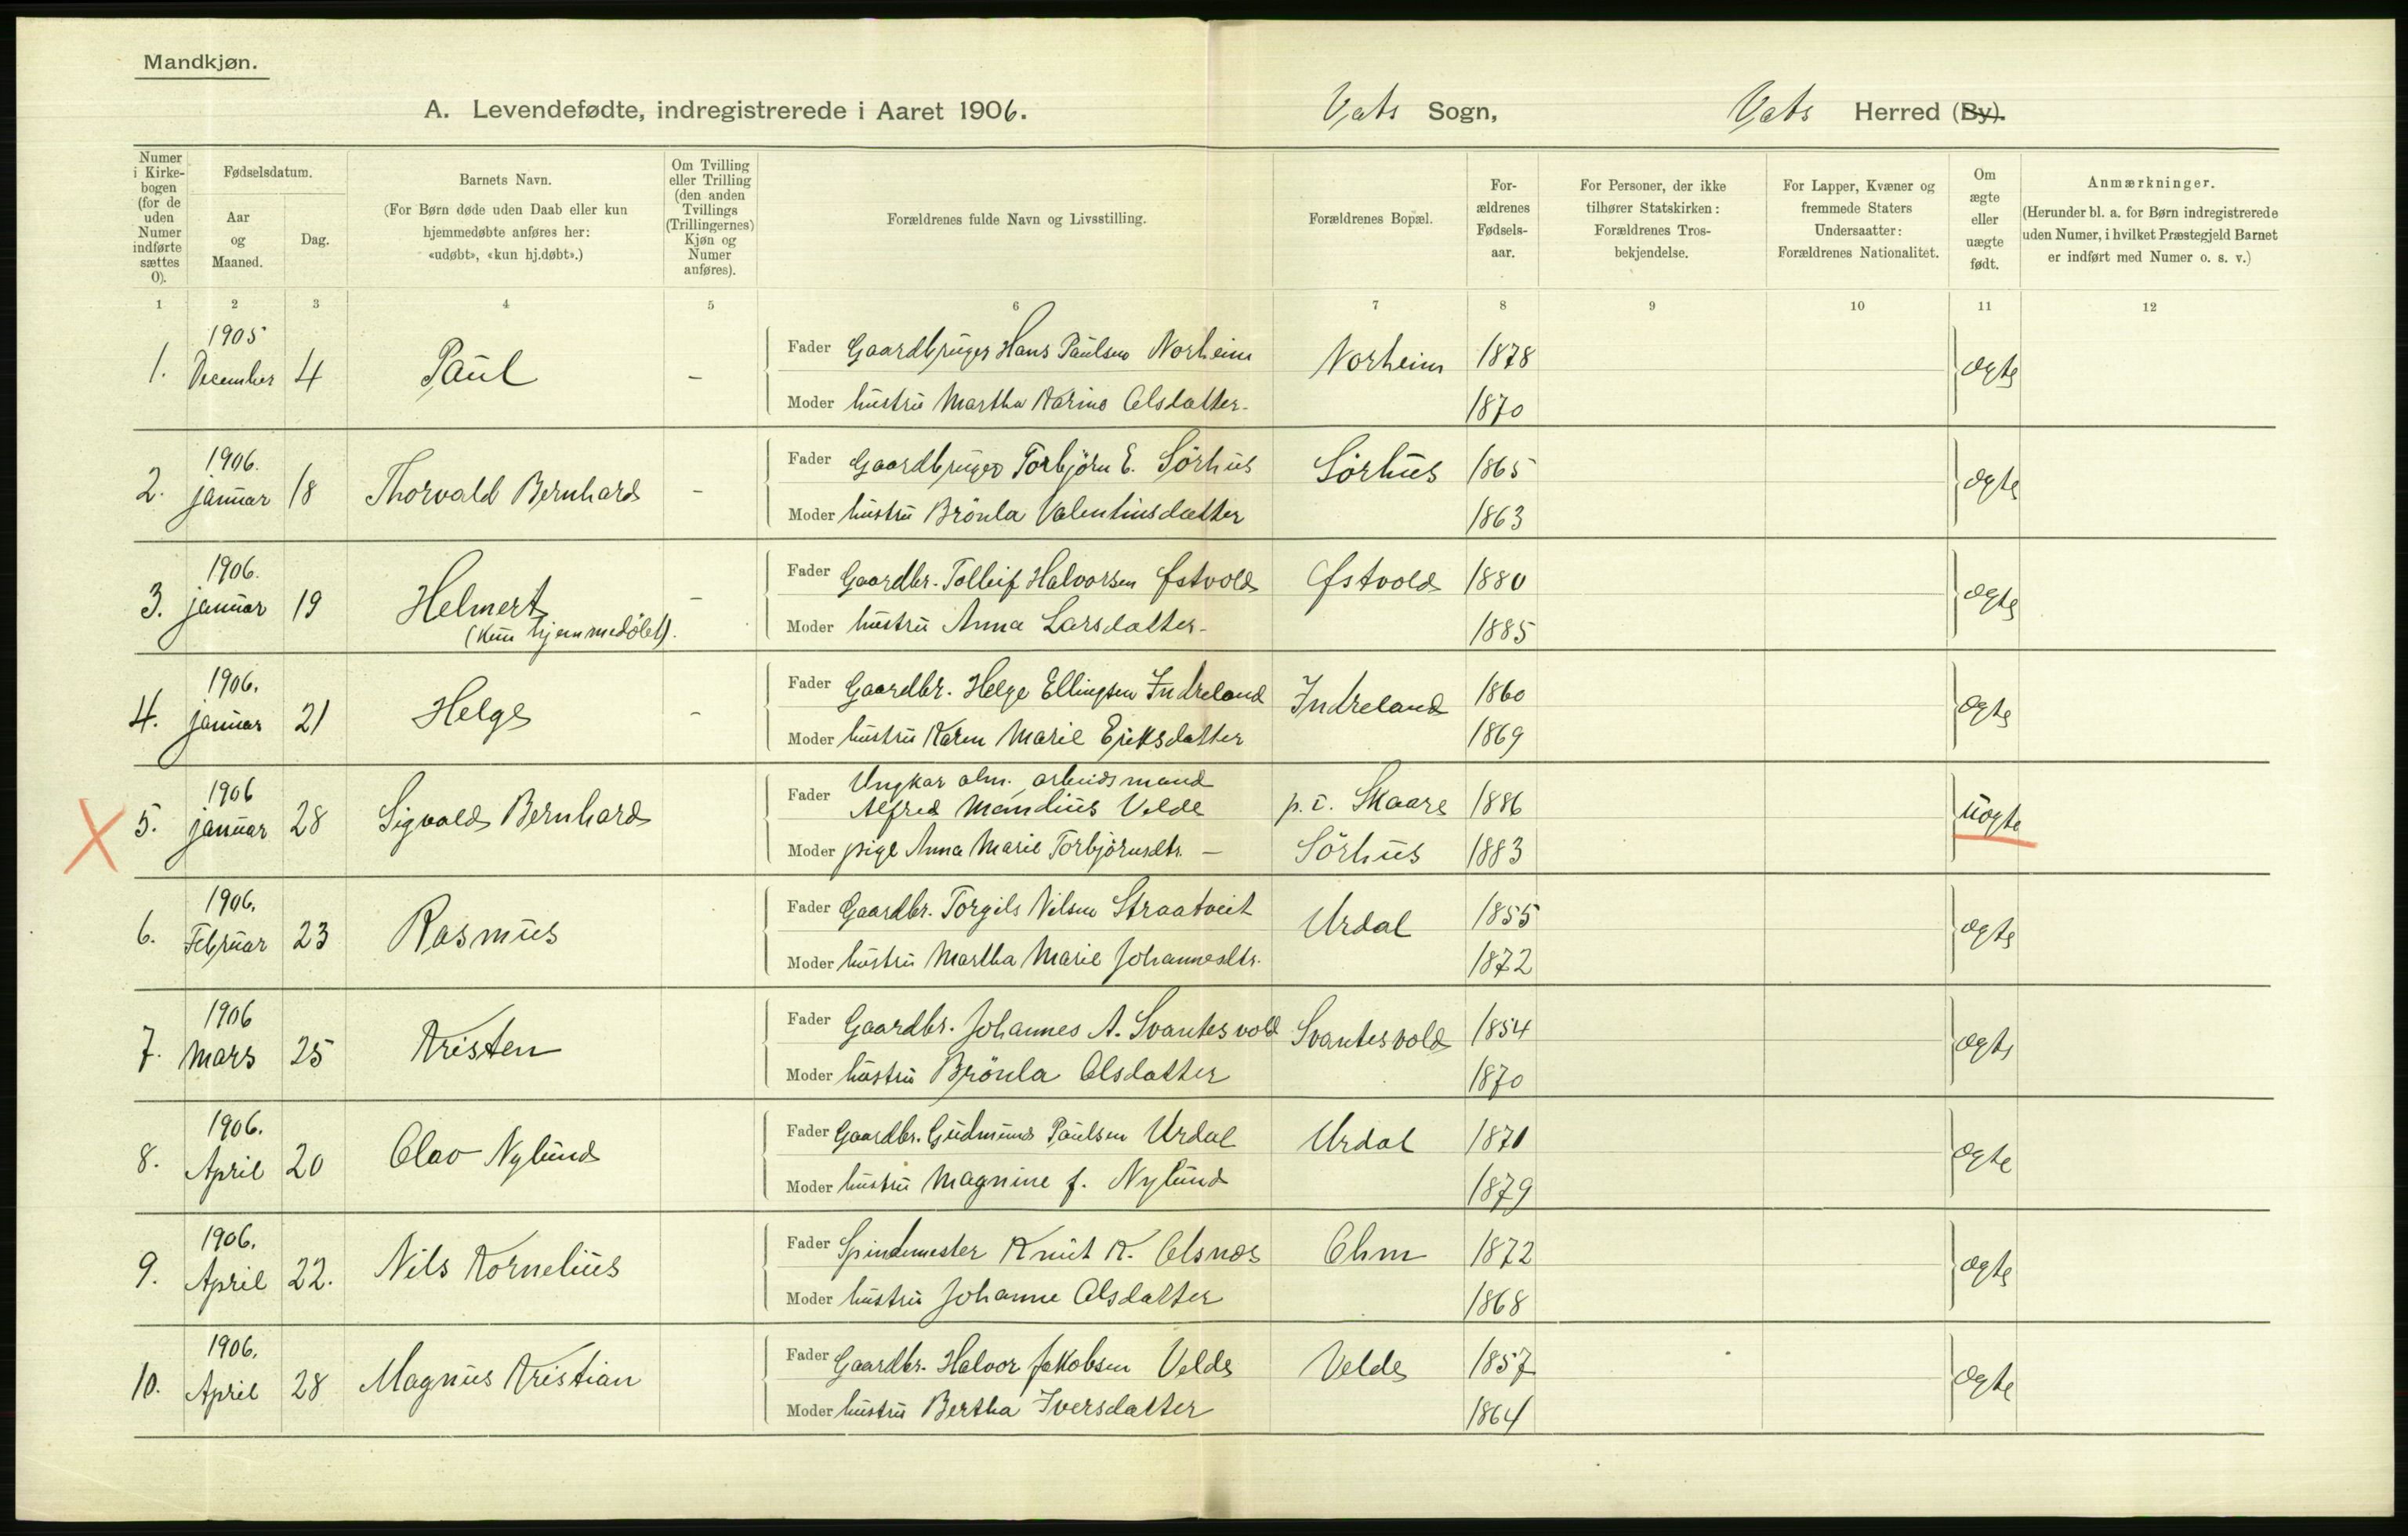 Mandkjøn.
A. Levendefødte, indregistrerede i Aaret 1906. Vats Sogn, Vats Herred (By).
Numer i Kirke-bogen (for de uden Numer indførte sættes 0).
Fødselsdatum.
Aar og Maaned.
Dag.
Barnets Navn.
(For Børn døde uden Daab eller kun hjemmedøbte anføres her: «udøbt», «kun hj.døbt».)
Om Tvilling eller Trilling (den anden Tvillings (Trillingernes) Kjøn og Numer anføres).
Forældrenes fulde Navn og Livsstilling.
Forældrenes Bopæl.
For-ældrenes Fødsels-aar.
For Personer, der ikke tilhører Statskirken: Forældrenes Tros-bekjendelse.
For Lapper, Kvæner og fremmede Staters Undersaatter: Forældrenes Nationalitet.
Om ægte eller uægte født.
Anmærkninger.
(Herunder bl. a. for Børn indregistrerede uden Numer, i hvilket Præstegjeld Barnet er indført med Numer o. s. v.)
1 2 3 4 5 6 7 8 9 10 11 12
1. 1905 December 4 Paul - Fader Gaardbruger Hans Paulsen Norheim Norheim 1878 ægte
Moder hustru Martha Karine Olsdatter 1870
2. 1906. januar 18 Thorvald Bernhard - Fader Gaardbruger Torbjørn E. Sørhus Sørhus 1865 ægte
Moder hustru Brönla Valentinsdatter 1863
3. 1906. januar 19 Helmert (kun hjemmedöbt). - Fader Gaardbr. Tolleif Halvorsen Østvold Østvold 1880 ægte
Moder hustru Anna Larsdatter 1885
4. 1906. januar 21 Helge - Fader Gaardbr. Helge Ellingsen Indreland Indreland 1860 ægte
Moder hustru Karen Marie Eriksdatter 1869
5. 1906 januar 28 Sigvald Bernhard Fader Ungkar alm. arbeidsmand
Alfred Mandius Velde p.t. Skaare 1886 uægte
Moder pige Anna Marie Torbjørnsdtr. - Sørhus 1883
6. 1906. Februar 23 Rasmus Fader Gaardbr. Torgils Nilsen Straatveit Urdal 1855 ægte
Moder hustru Martha Marie Johannesdtr. 1872
7. 1906 Mars 25 Kristen Fader Gaardbr. Johannes A. Svantesvold Svantesvold 1854 ægte
Moder hustru Brönla Olsdatter 1870
8. 1906. April 20 Olav Nylund Fader Gaardbr. Gudmund Paulsen Urdal Urdal 1871 ægte
Moder hustru Magnine f. Nylund 1879
9. 1906. April 22. Nils Kornelius Fader Spindemester Knut K. Olsnes Ohm 1872 ægte
Moder hustru Johanne Olsdatter 1868
10. 1906. April 28 Magnus Kristian Fader Gaardbr. Halvor Jakobsen Velde Velde 1857 ægte
Moder hustru Bertha Iversdatter 1864